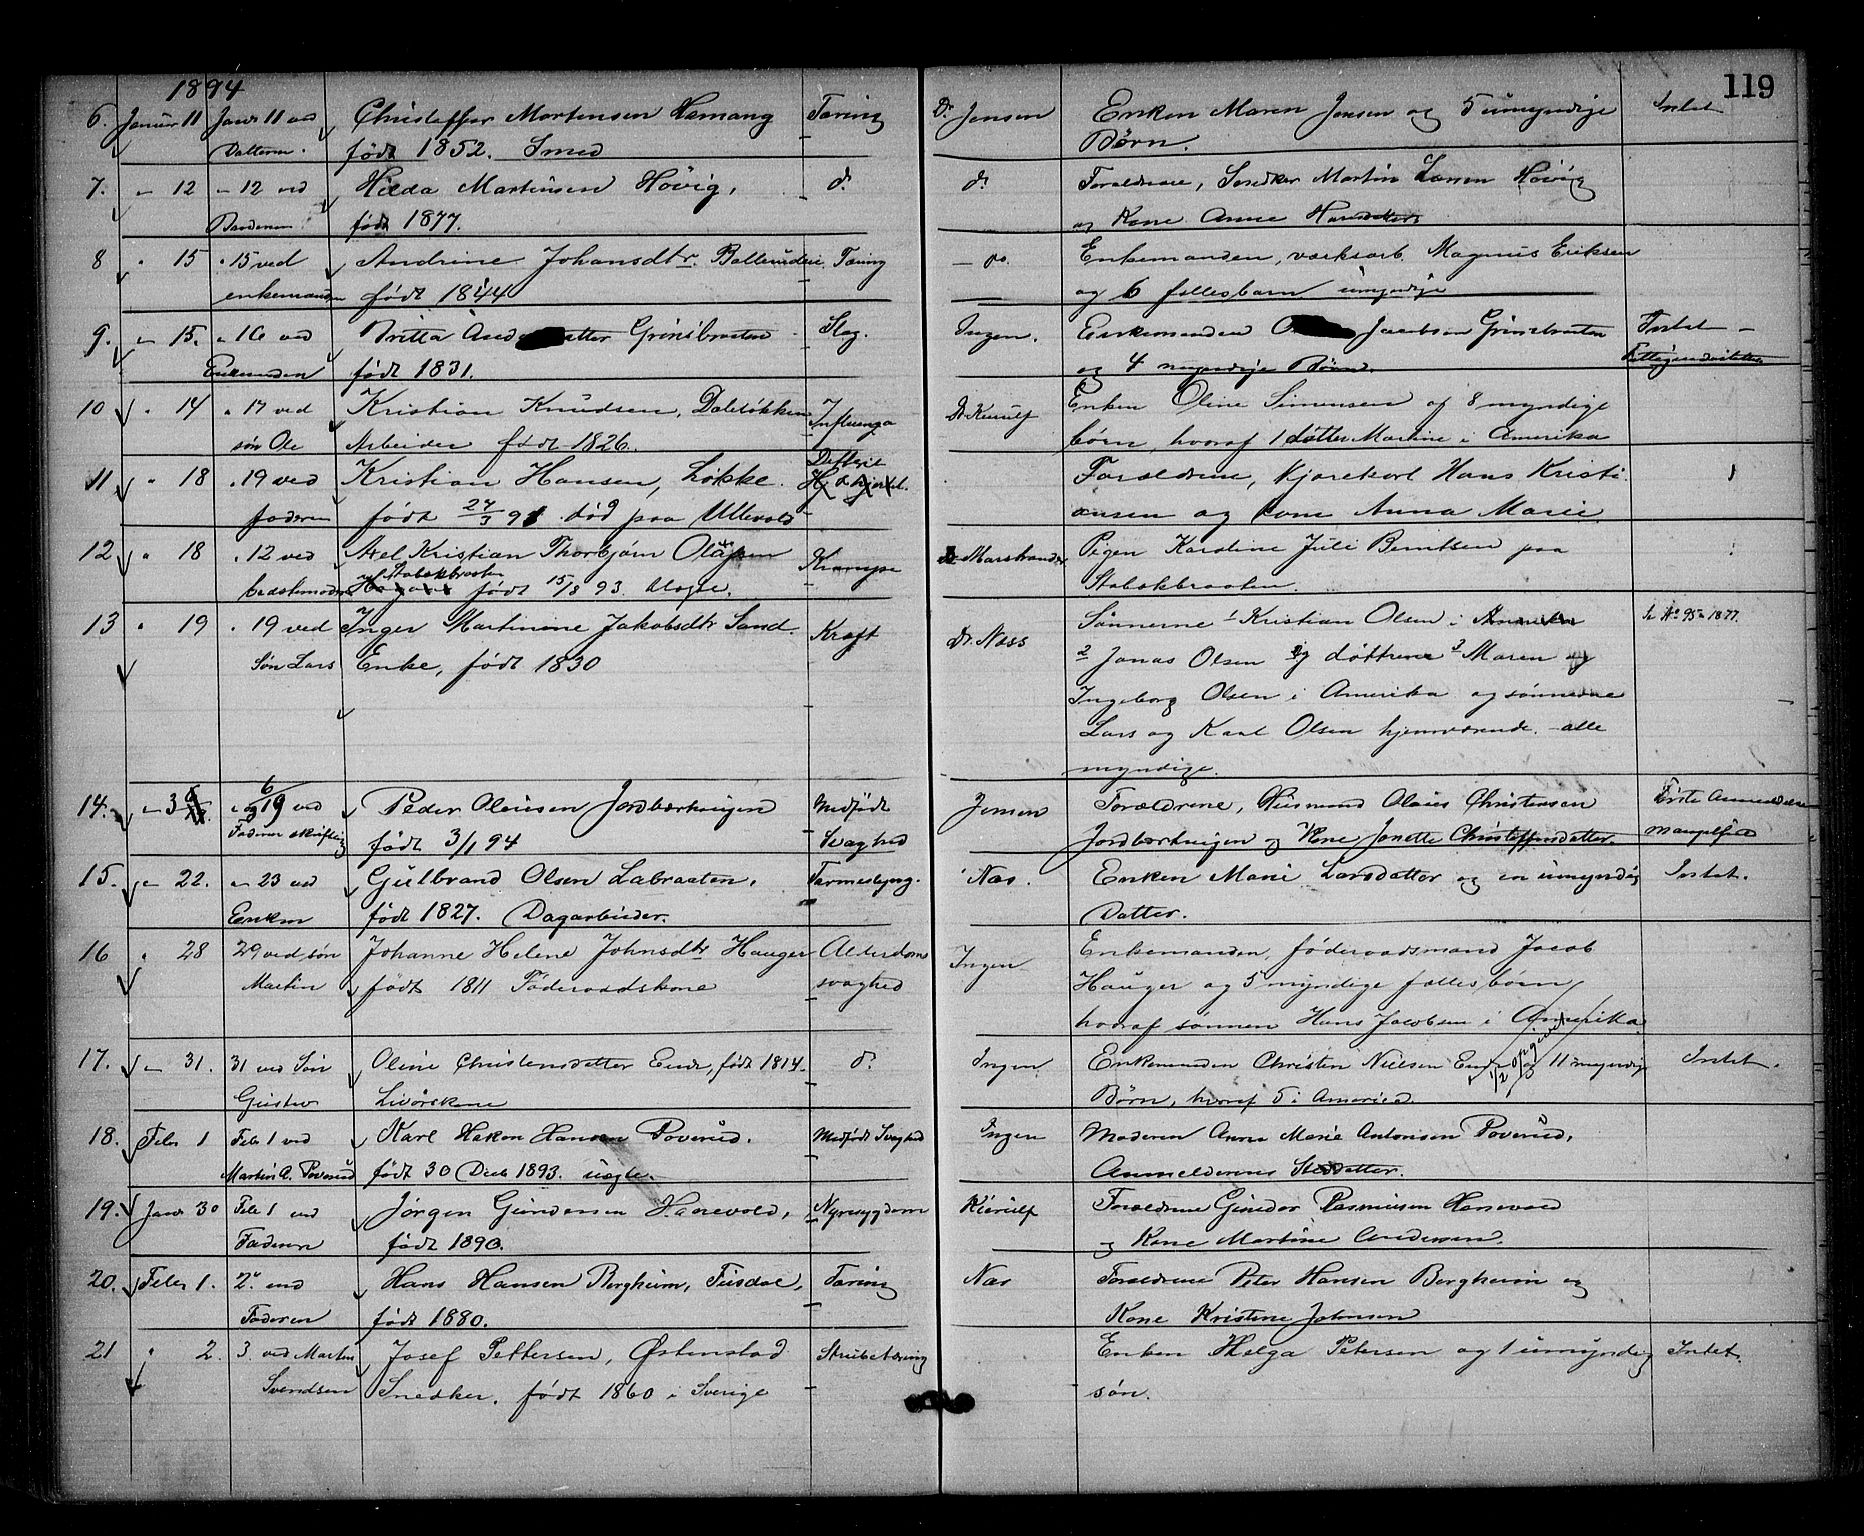 1894
119
6. Januar 11 Janr 11 ved Christoffer Mortensen Hamang Tæring Dr Jensen Enken Maren Jensen og 5 umyndige Intet
Datteren. født 1852. Smed Børn.
7. " 12 " 12 ved Hilda Martinsen Høvig, do do Forældrene, Snedker Martin Larsen Høvig
født 1877. og Kone Anne Hansdatter
8 " 15 " 15 ved Andrine Johansdtr. Ballerudeie. Tæring do. Enkemanden, værksarb. Magnus Eriksen
enkemanden født 1844 og 6 fællesbarn umyndige
9. " 15. " 16 ved Britta Grinibraaten Slag. Ingen. Enkemanden Jacobsen Grinibraaten Intet
Enkemanden født 1831. og 4 myndige Børn.
10 " 14 " 17 ved Kristian Knudsen, Daleløkken Influenza Dr Kierulf Enken Oline Simensen og 8 myndige
søn Ole Arbeider født 1826. børn, hvoraf 1 datter Martine i Amerika
11 " 18 " 19 ved Kristian Hansen, Løkke. Difterit Forældrene, kjørekarl Hans Kristi
faderen født 27/3 91 død paa Ullevold ansen og kone Anna Marie
12 " 18 " 12 ved Axel Kristian Thorbjørn Olausen Krampe Dr Marstrander Pigen Karoline Juli Berntsen paa
bedstemoder Stabækbraaten født 15/8 93. Uægte. Stabækbraaten.
13 " 19 " 19 ved Inger Martinene Jakobsdtr Sand. Kræft Dr. Næss Sønnerne 1 Kristian Olsen i Amerika Se No 95 1877.
Søn Lars Enke, født 1830 2 Jonas Olsen og døttrene Maren og
Ingeborg Olsen i Amerika og sønnerne
Lars og Karl Olsen hjemværende. alle
myndige.
14. 6/ 19 ved Peder Olausen Jordbærhaugen Medfødt Jensen Forældrene, Husmand Olaus Christensen
Faderen skriftlig født 3/1 94 Svaghed Jordbærhaugen og Kone Jonette Christoffersdatter.
15. " 22. " 23 ved Gulbrand Olsen Labraaten, Næs. Enken Marie Larsdatter og en umyndig Intet.
Enken født 1827. Dagarbeider. Datter.
16 " 28 29 ved søn Johanne Helene Johnsdtr Hauger Alderdoms Ingen Enkemanden, føderaadsmand Jacob
Martin født 1811 Føderaadskone svaghed Hauger og 5 myndige fælles børn
hvoraf sønnen Hans Jacobsen i Amerika
17. " 31. 31 ved Søn Oline Christensdatter Enge, født 1814. do Ingen. Enkemanden Christen Nielsen Enge og 11 myndige Intet.
Gustav Livørskone Børn, hvoraf 5 i America.
18. Febr 1 Febr 1 ved Karl Hakon Hansen Poverud. Medfødt Svaghed Ingen Moderen Anna Marie Antonsen Poverud,
Martin A. Poverud født 30 Decb 1893. uægte. Anmelderens Steddatter.
19. Janr 30 Febr 1 ved Jørgen Gundersen Hanevold, Nyresygdom Kierulf Forældrene Gunder Rasmusen Hanevold
Faderen født 1890. og Kone Martine Andersen.
20. Febr 1. 2. ved Hans Hansen Bergheim, Tusdal, Tæring Næs Forældrene Peter Hansen Bergheim og
Faderen født 1880. Kone Kristine Johnsen
21 " 2. 3. ved Martin Josef Pettersen, Østenstad Strubetæring Enken Helga Petersen og 1 umyndig Intet.
Svendsen Snedker, født 1860 i Sverige søn.